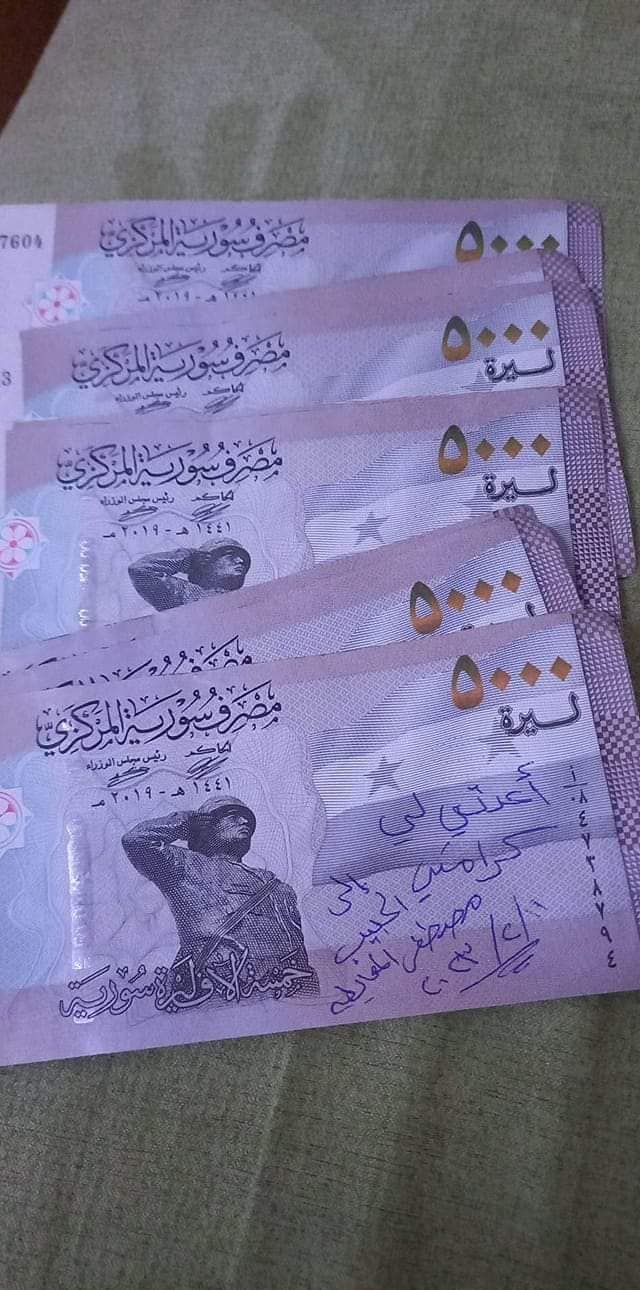 7604
مصرف سورية المركزي
٥٠٠٠
رئيس مجلس الوزراء
الحاكم
١٤٤١ هـ - ٢٠١٩ مـ
3
مصرف سورية المركزي
٥٠٠٠
ليرة
رئيس مجلس الوزراء
الحاكم
مصرف سورية المركزي
٥٠٠٠
ليرة
رئيس مجلس الوزراء
الحاكم
١٤٤١ هـ - ٢٠١٩ مـ
٥٠٠٠
مصرف
مصرف سورية المركزي
٥٠٠٠
ليرة
رئيس مجلس الوزراء
الحاكم
١٤٤١ هـ - ٢٠١٩ مـ
أعدتي لي
كرامتي
إلى الحبيب
مصطفى
٢٠٢٣/٢/١١
خمسة آلاف ليرة سورية
أ/٠٨ ٤٧٣٨٧٩٤